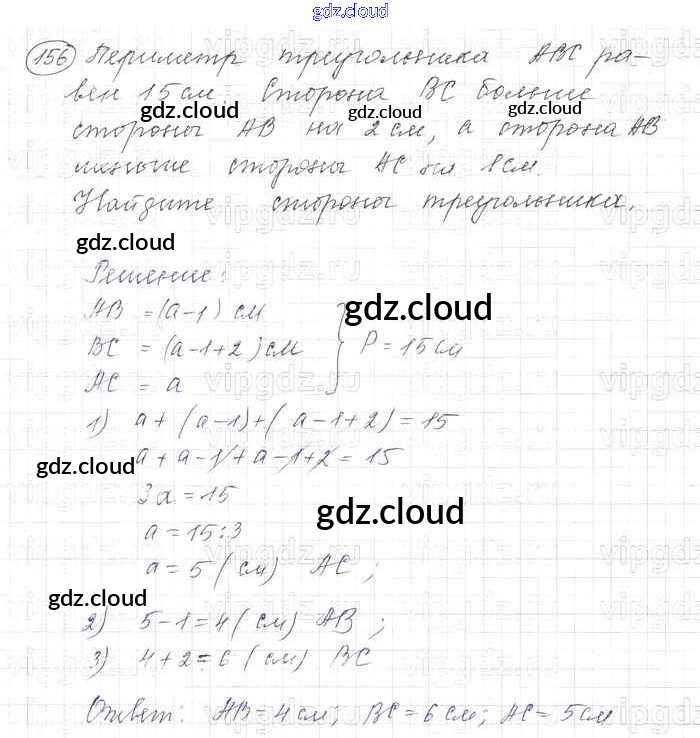 gdz.cloud
156 Периметр треугольника ABC ра-
вен 15 см. Сторона BC больше
gdz.cloud gdz.cloud gdz.cloud
стороны AB на 2 см, а сторона AB
меньше стороны AC на 1 см.
Найдите стороны треугольника.
gdz.cloud
Решение:
AB = (a-1) см
gdz.cloud
BC = (a-1+2) см } P = 15 см
AC = a
1) a + (a-1) + (a-1+2) = 15
a + a - 1 + a - 1 + 2 = 15
gdz.cloud
3a = 15
gdz.cloud
a = 15:3
a = 5 (см) AC ;
gdz.cloud
2) 5-1 = 4 (см) AB ;
3) 4+2 = 6 (см) BC
Ответ: AB = 4 см; BC = 6 см; AC = 5 см